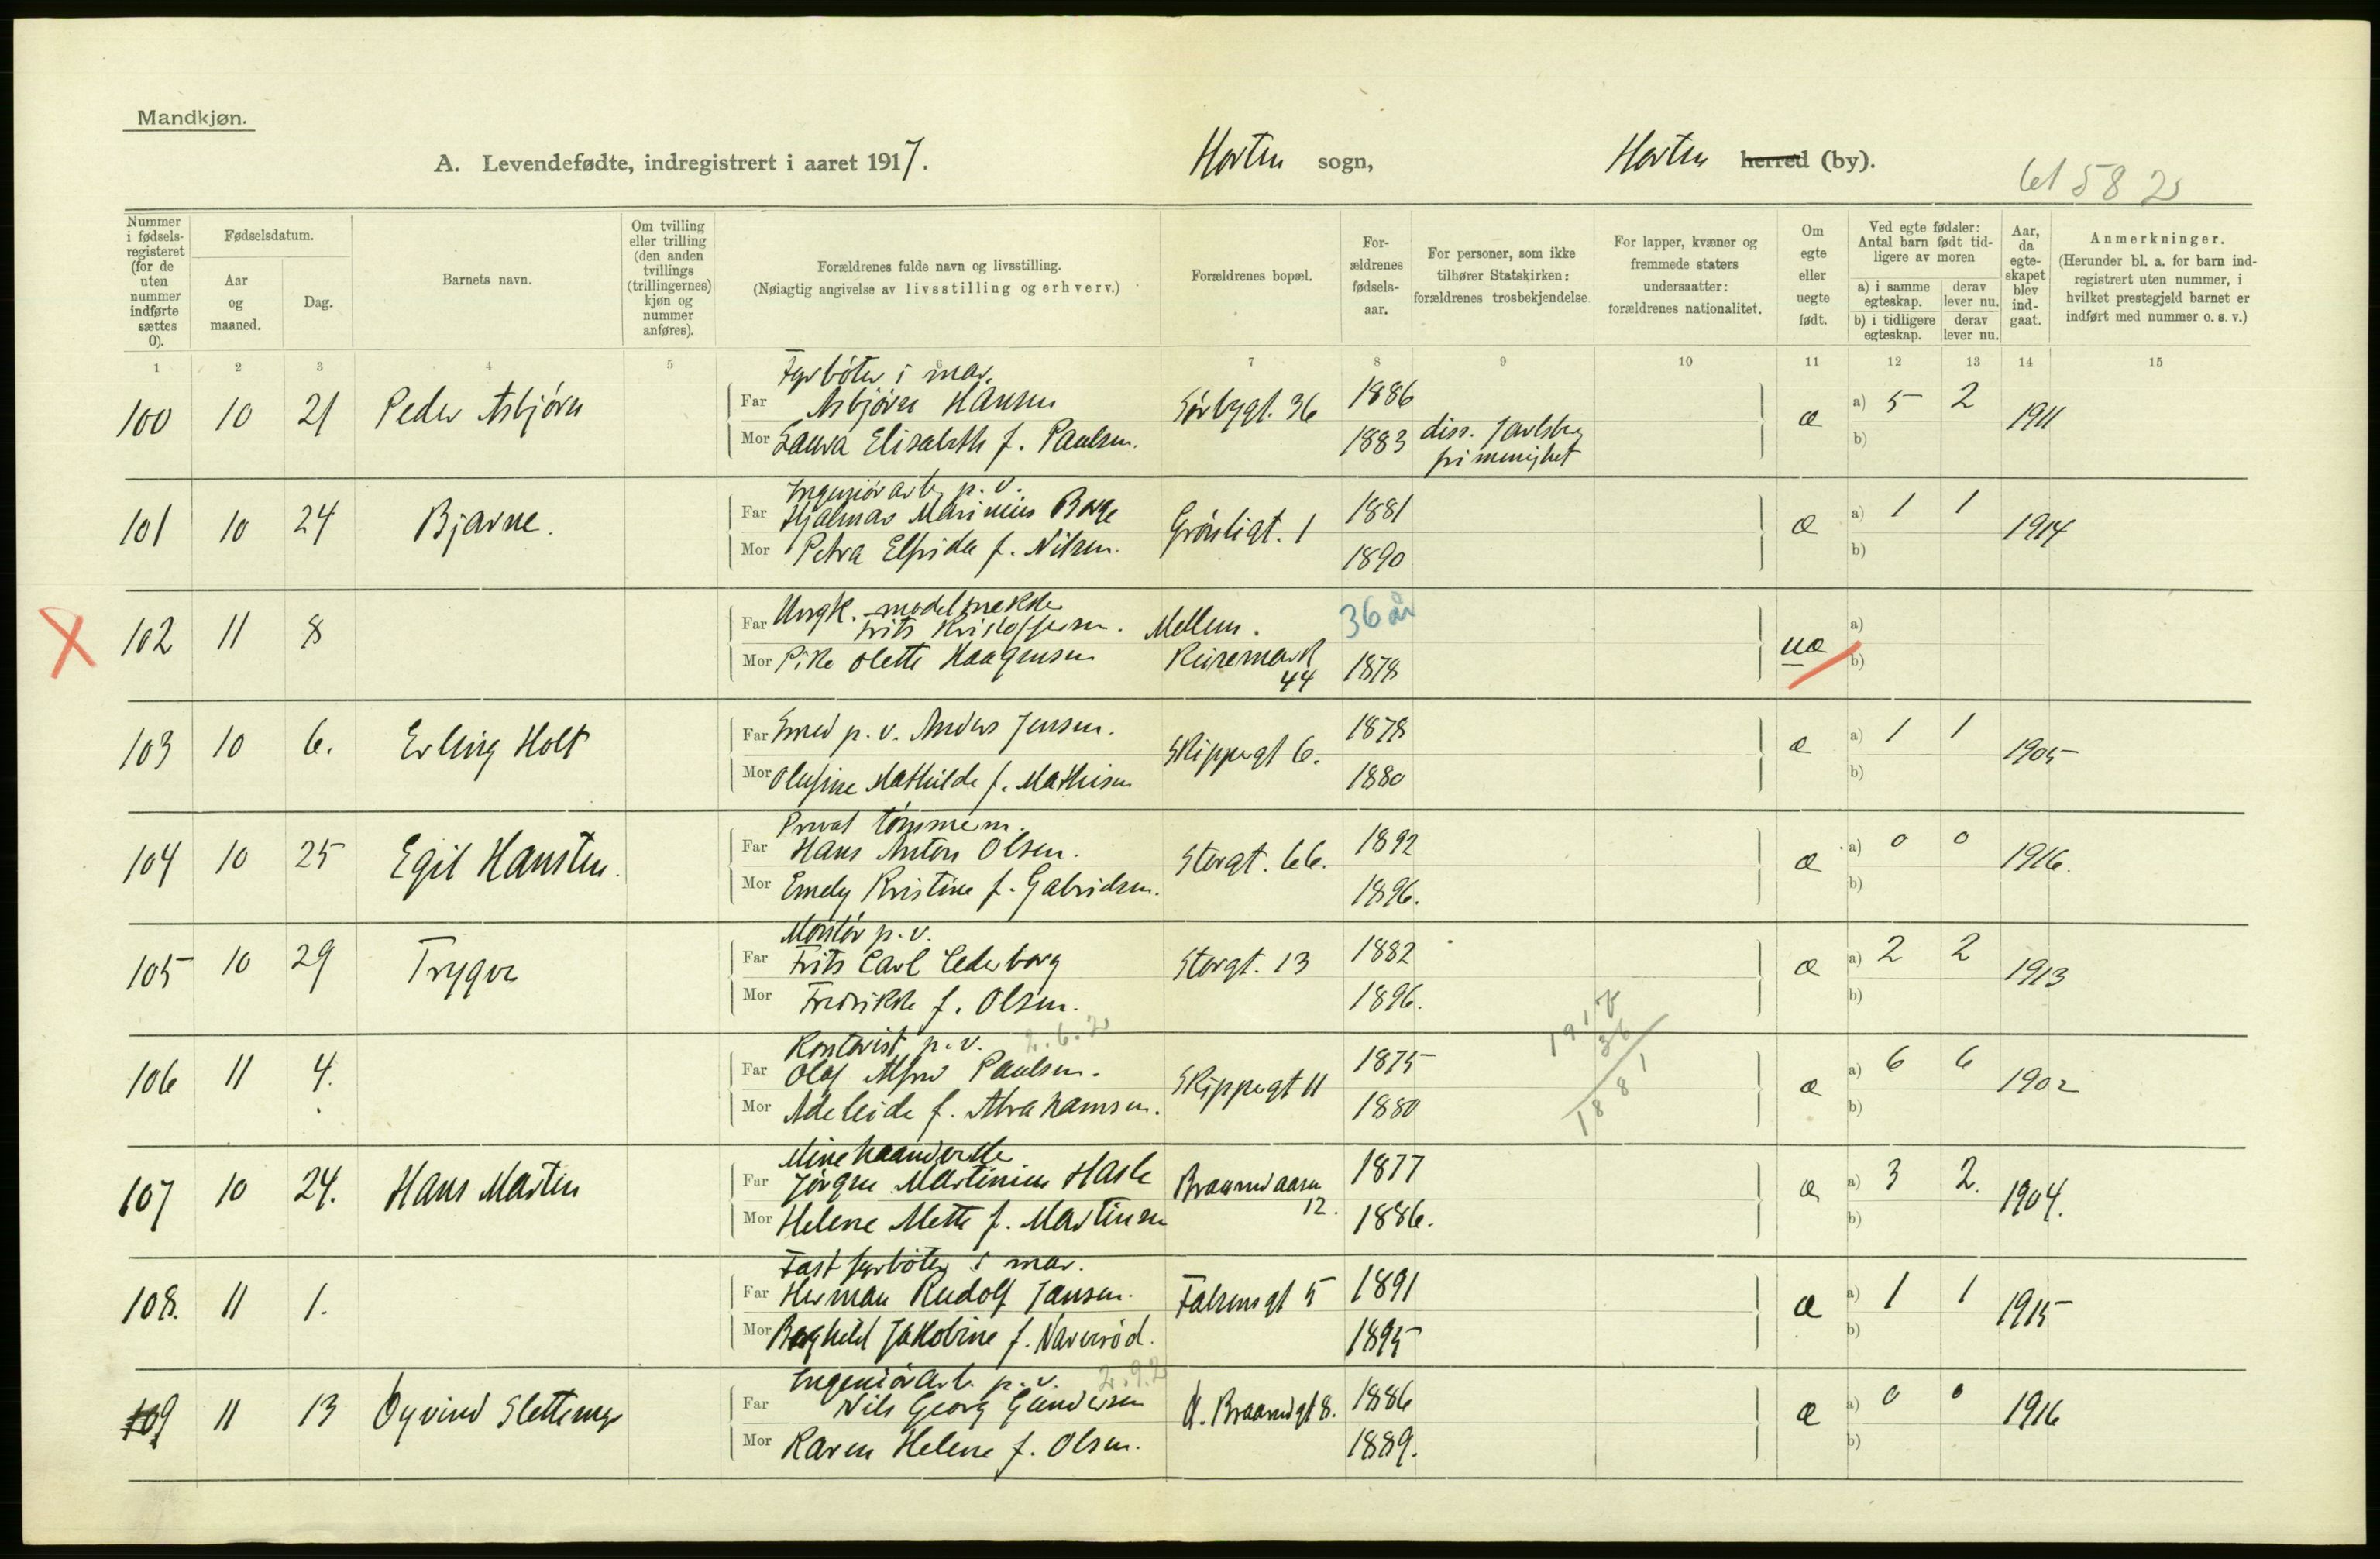 Mandkjøn.
A. Levendefødte, indregistrert i aaret 1917. Horten sogn, Horten herred (by).
61 5 8 2
Nummer i fødselsregisteret (for de uten nummer indførte sættes 0).
Fødselsdatum.
Aar og maaned.
Dag.
Barnets navn.
Om tvilling eller trilling (den anden tvillings (trillingernes) kjøn og nummer anføres).
Forældrenes fulde navn og livsstilling.
(Nøiagtig angivelse av livsstilling og erhverv.)
Forældrenes bopæl.
Forældrenes fødselsaar.
For personer, som ikke tilhører Statskirken: forældrenes trosbekjendelse
For lapper, kvæner og fremmede staters undersaatter: forældrenes nationalitet.
Om egte eller uegte født.
Ved egte fødsler: Antal barn født tidligere av moren
a) i samme egteskap.
derav lever nu.
b) i tidligere egteskap.
derav lever nu.
Aar, da egteskapet blev indgaat.
Anmerkninger.
(Herunder bl. a. for barn indregistrert uten nummer, i hvilket prestegjeld barnet er indført med nummer o. s. v.)
1 2 3 4 5 6 7 8 9 10 11 12 13 14 15
Fyrbøter i mar.
100 10 21 Peder Asbjørn Far Asbjørn Hansen Sørbygt. 36 1886 æ a) 5 2 1911
Mor Laura Elisabeth f. Paulsen. 1883 diss. Jarlsberg b)
frimenighet
Ingeniørarb. p. v.
101 10 24 Bjarne. Far Hjalmar Marinius Borge Grønligt. 1 1881 æ a) 1 1 1914
Mor Petra Elfrida f. Nilsen. 1890 b)
Ungk. modelsnekker
X 102 11 8 Far Frits Kristoffersen. Mellem. 36 år uæ a)
Mor Pike Olette Haagensen Keisemark 44 1878 b)
103 10 6. Erling Holt Far Smed p. v. Anders Jensen. Skippergt 6. 1878 æ a) 1 1 1905
Mor Olufine Mathilde f. Mathisen 1880 b)
Privat tømmerm.
104 10 25 Egil Hansten. Far Hans Anton Olsen. Storgt. 66. 1892 æ a) 0 0 1916.
Mor Emely Kristine f. Gabrielsen. 1896. b)
Montør p. v.
105 10 29 Trygve Far Frits Carl Cederborg Storgt. 13 1882 æ a) 2 2 1913
Mor Fredrikke f. Olsen. 1896. b)
Kontorist p. v. 2.6.2
106 11 4. Far Olaf Alfred Paulsen. Skippergt 11 1875 æ a) 6 6 1902
Mor Adeleide f. Abrahamsen. 1880 b)
1917
36
1881
Minehaandverker
107 10 24. Hans Martin Far Jørgen Martinius Hasle Braarudaasen 12. 1877 æ a) 3 2. 1904.
Mor Helene Mette f. Martinsen 1886. b)
Fast fyrbøter i mar.
108. 11 1. Far Herman Rudolf Jansen. Falsensgt 5 1891 æ a) 1 1 1915
Mor Borghild Jakobine f. Naversrød. 1895 b)
Ingeniørarb. p. v. 2.9.2
109 11 13 Øyvind Slettenge Far Nils Georg Gundersen Ø. Braarudgt 8. 1886 æ a) 0 0 1916
Mor Karen Helene f. Olsen. 1889. b)